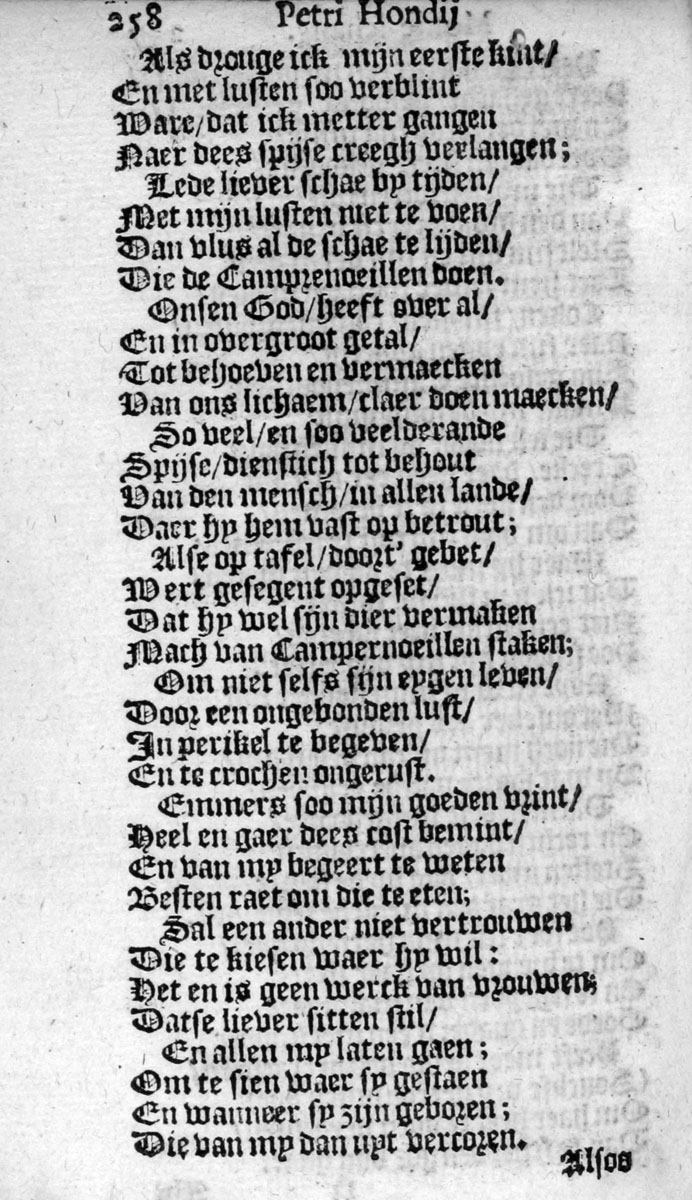 258 Petri Hondij
Als drouge ick mijn eerste kint/
En met lusten soo verblint
Ware/dat ick metter gangen
Naer dees spijse creegh verlangen;
Lede liever schae by tijden/
Met mijn lusten niet te voen/
Dan vlus al de schae te lijden/
Die de Camprenoeillen doen.
Onsen God/heeft over al/
En in overgroot getal/
Tot behoeven en vermaecken
Van ons lichaem/claer doen maecken/
So veel/en soo veelderande
Spijse/dienstich tot behout
Van den mensch/in allen lande/
Daer hy hem vast op betrout;
Alse op tafel/doort' gebet/
Wert gesegent opgeset/
Dat hy wel sijn dier vermaken
Mach van Campernoeillen staken;
Om niet selfs sijn eygen leven/
Door een ongebonden lust/
In perikel te begeven/
En te crochen ongerust.
Emmers soo mijn goeden vrint/
Heel en gaer dees cost bemint/
En van my begeert te weten
Besten raet om die te eten;
Sal een ander niet vertrouwen
Die te kiesen waer hy wil:
Het en is geen werck van vrouwen;
Datse liever sitten stil/
En allen my laten gaen;
Om te sien waer sy gestaen
En wanneer sy zijn geboren;
Die van my dan uyt vercoren.
Alsoo